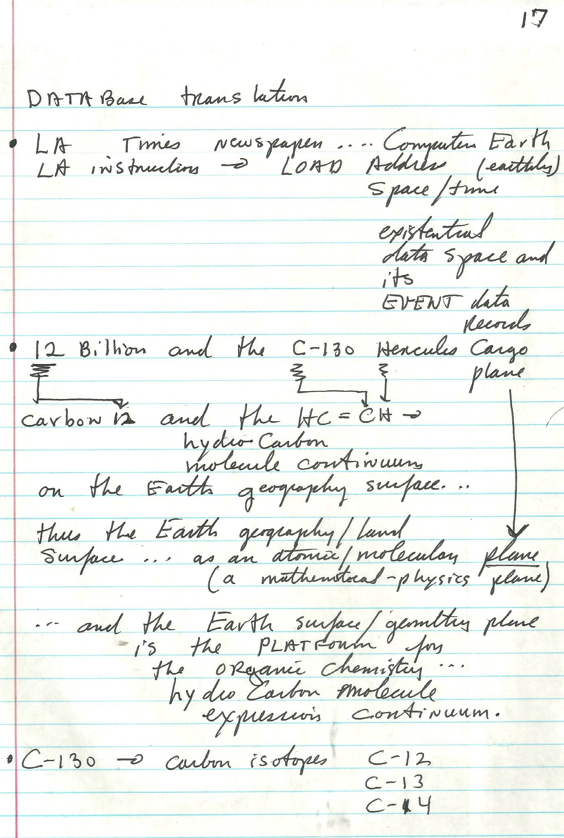 17
DATABase translation
• LA Times newspaper .... Computer Earth
LA instruction → LOAD Address (earthly)
Space/time
existential
data space and
its
EVENT data
records
• 12 Billion and the C-130 Hercules Cargo
plane
carbon 12 and the HC = CH →
hydro Carbon
molecule continuum
on the Earth geography surface...
thus the Earth geography/land
Surface ... as an atomic/molecular plane
(a mathematical-physics plane)
... and the Earth surface/geometry plane
is the PLATFORM for
the ORganic chemistry ...
hydro Carbon molecule
expression continuum.
• C-130 → carbon isotopes C-12
C-13
C-14